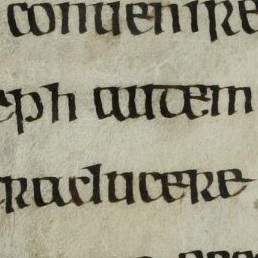 conuenire
eph autem
raducere